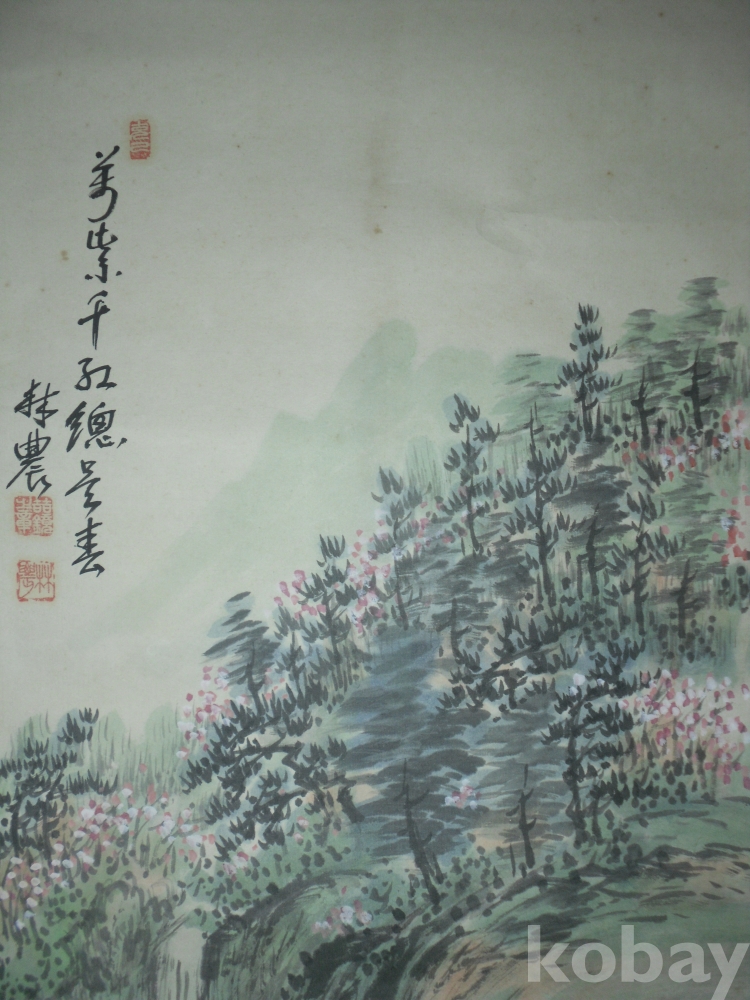 萬紫千紅總是春
林農
kobay